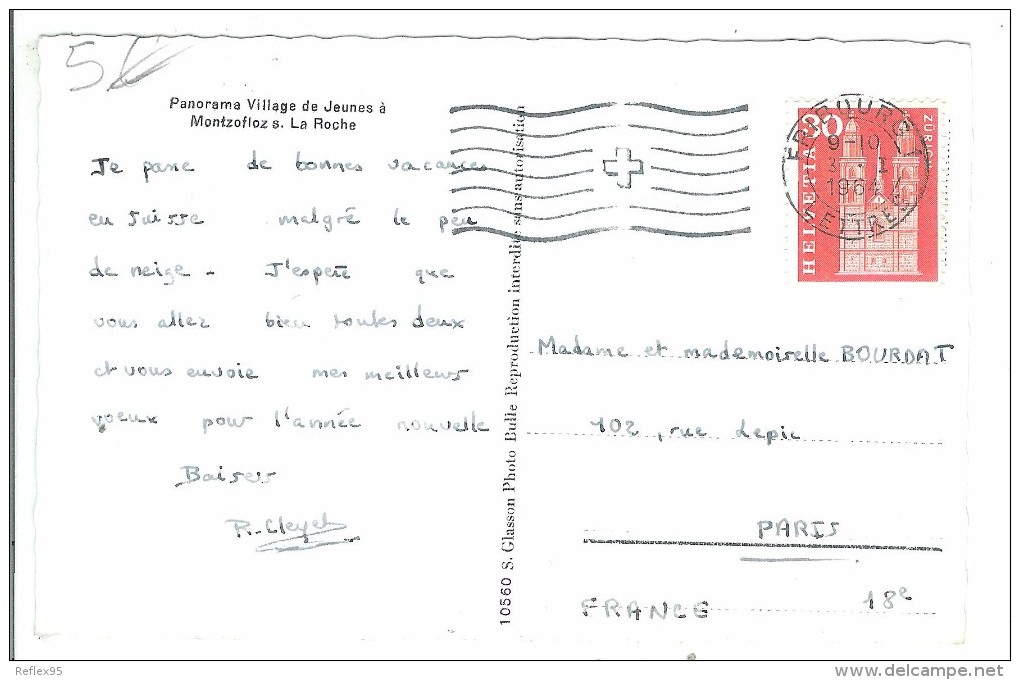 5
Panorama Village de Jeunes à
Montzofloz s. La Roche
Je passe de bonnes vacances
en Suisse malgré le peu
de neige - J'espère que
vous allez bien toutes deux
et vous envoie mes meilleurs
voeux pour l'année nouvelle
Baisers
10560 S. Glasson Photo Bulle Reproduction interdite sans autorisation
30
HELVETIA
ZÜRICH
FRIBOURG 1
9-10
1964
LETTRES
Madame et mademoiselle BOURDAT
102, rue Lepic
PARIS
FRANCE 18e
Reflex95
www.delcampe.net